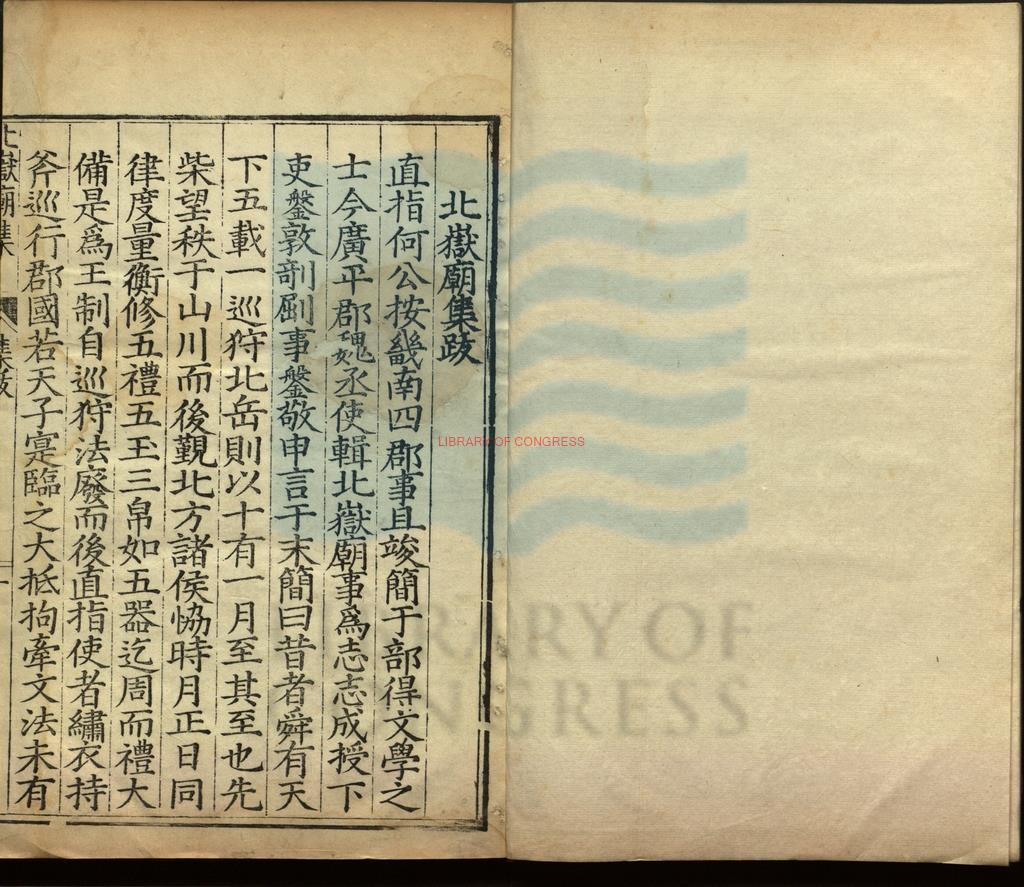 北嶽廟集跋
直指何公按畿南四郡事且竣簡于部得文學之
士今廣平郡魏丞使輯北嶽廟事爲志志成授下
吏鏧敦剞劂事鏧敬申言于末簡曰昔者舜有天
下五載一巡狩北岳則以十有一月至其至也先
柴望秩于山川而後覲北方諸侯恊時月正日同
律度量衡修五禮五玉三帛如五器迄周而禮大
備是爲王制自巡狩法廢而後直指使者繡衣持
斧巡行郡國若天子寔臨之大抵拘牽文法未有
北嶽廟集
集跋
一
LIBRARY OF CONGRESS
LIBRARY OF
CONGRESS